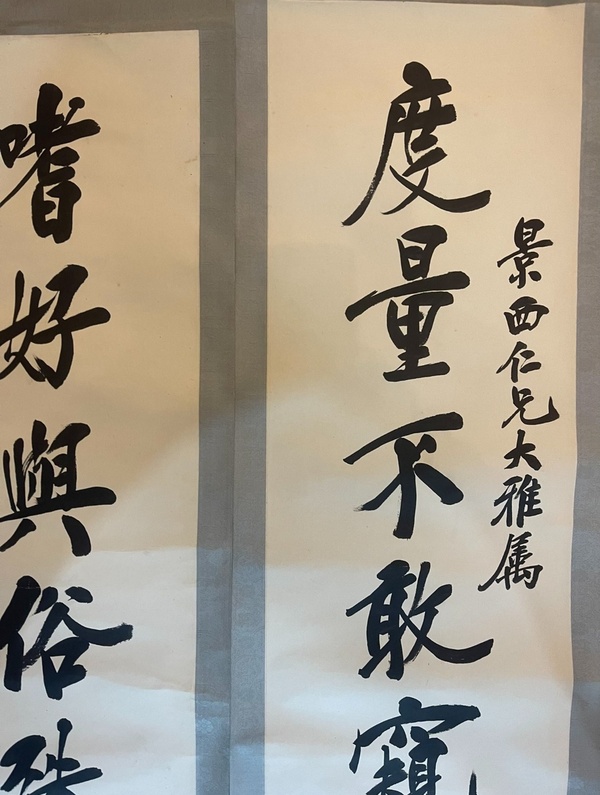 景西仁兄大雅属
度量不敢窺
嗜好與俗殊